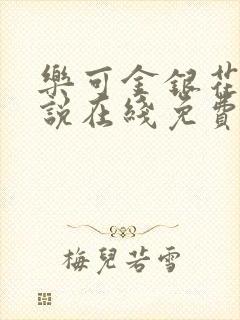 樂可金銀花
說在綫免費
梅兒若雪